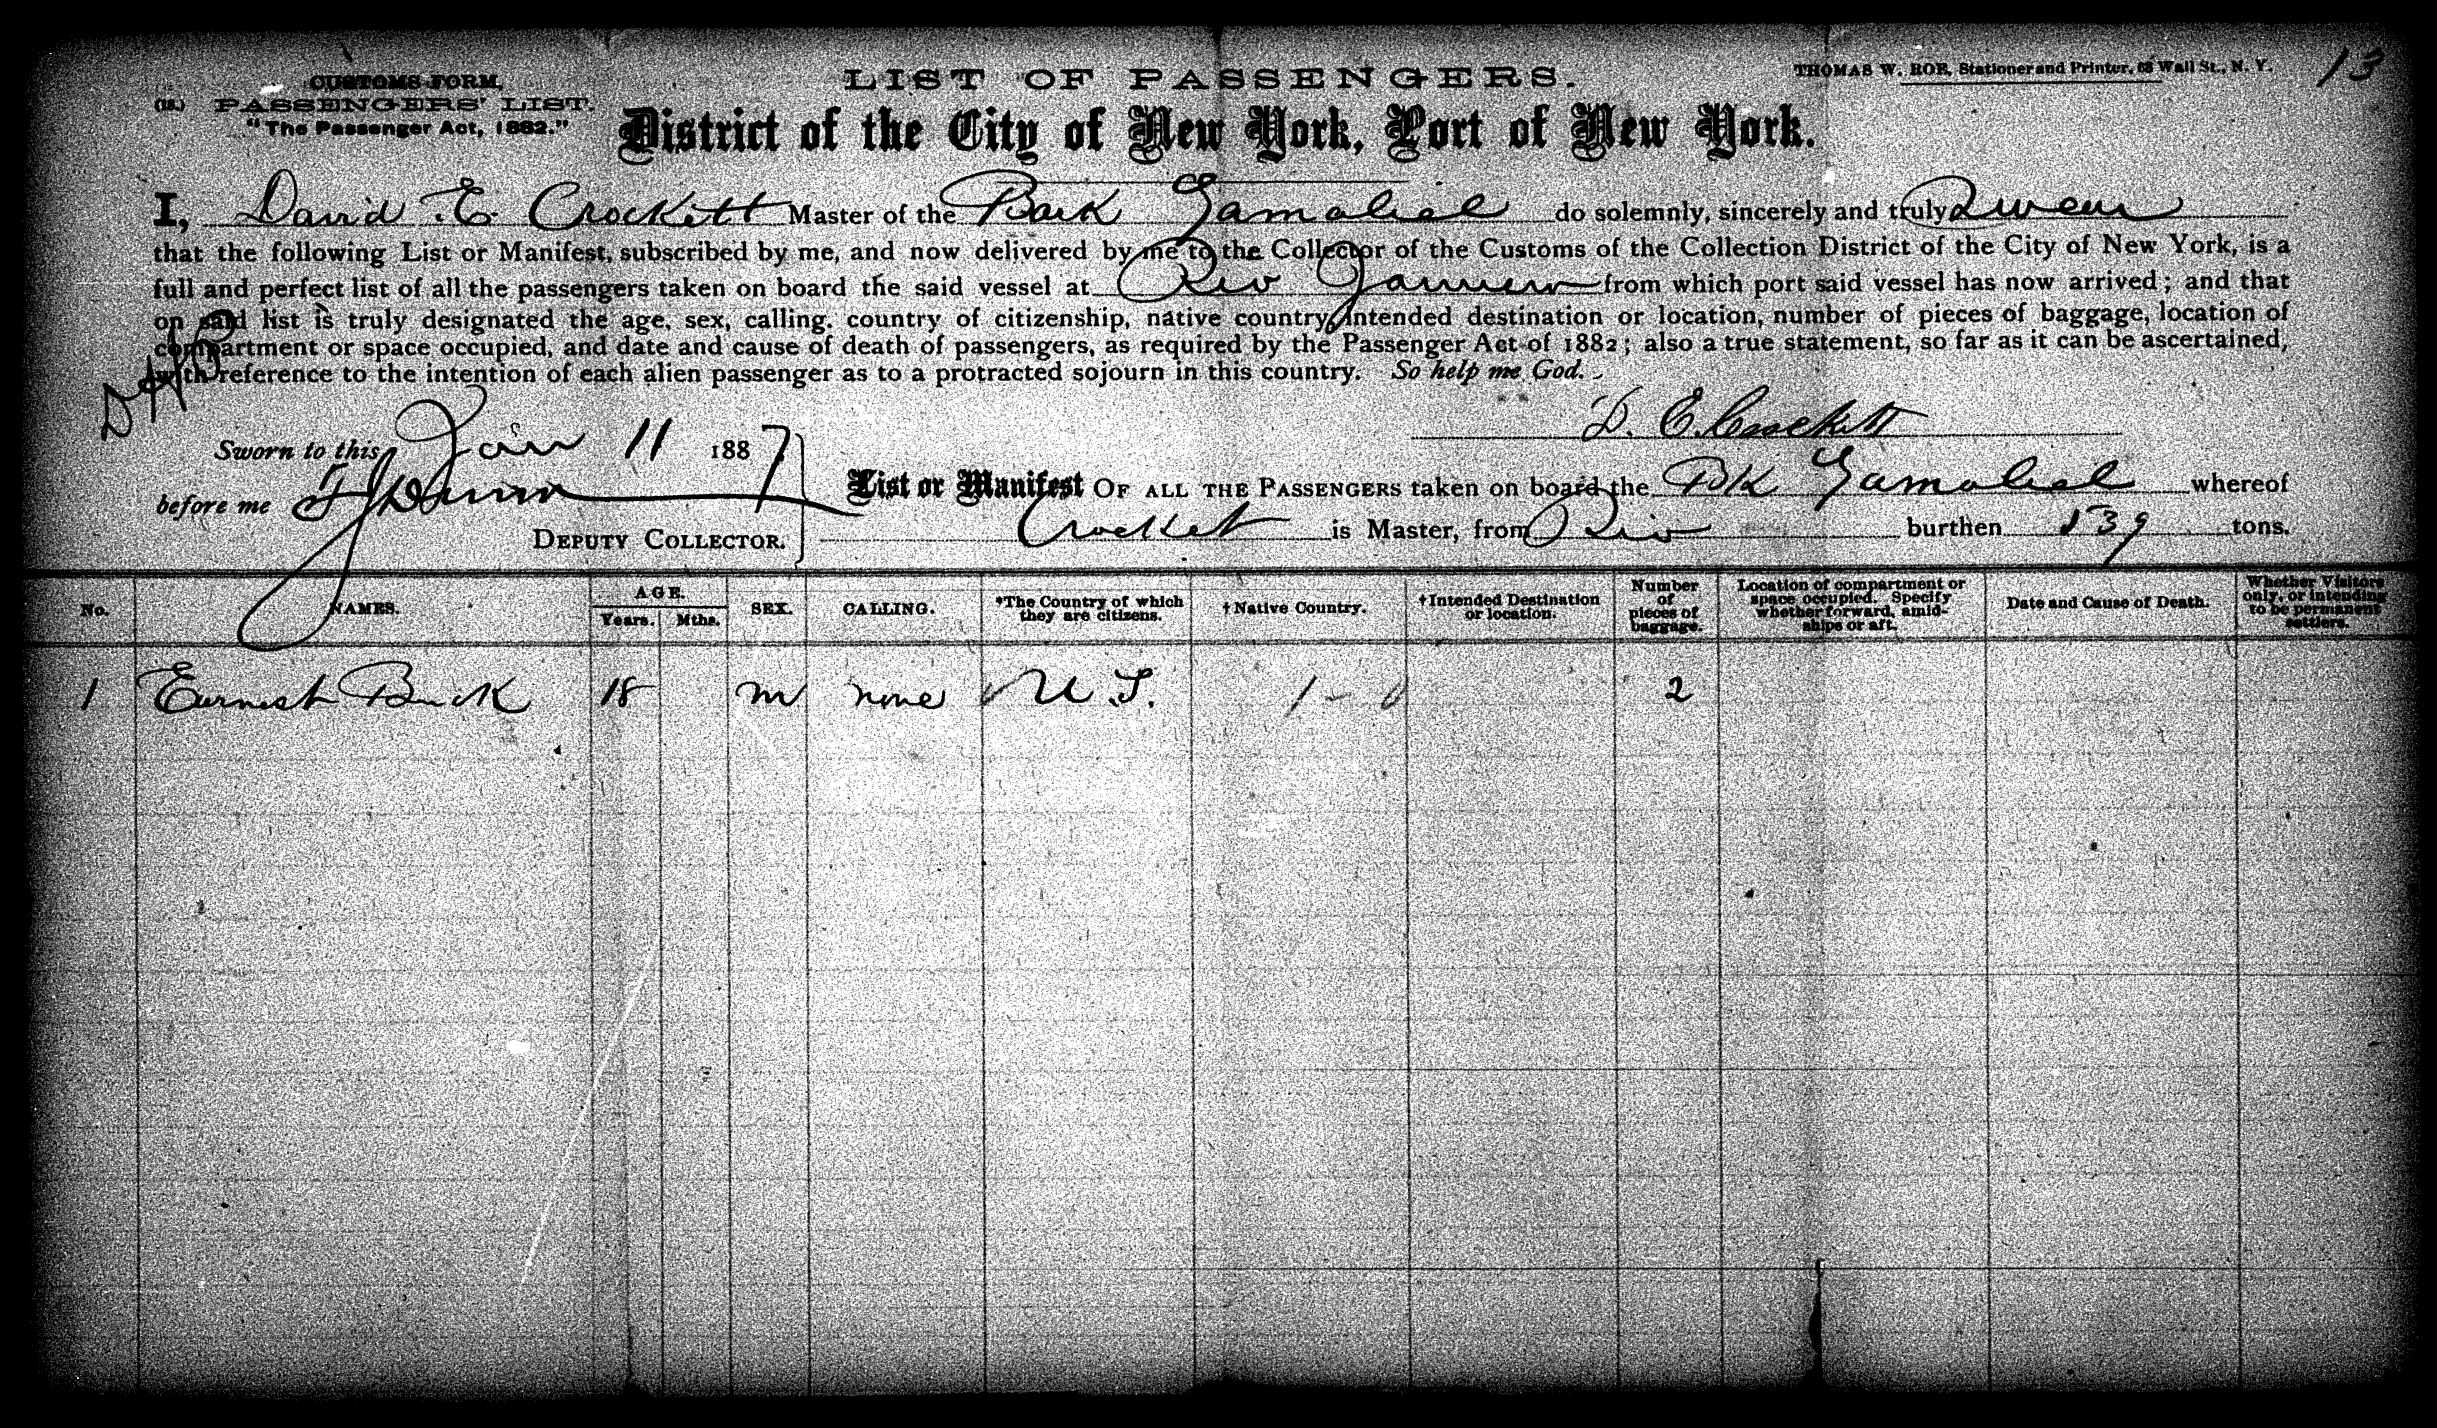 13
CUSTOMS FORM,
PASSENGERS' LIST.
"The Passenger Act, 1882."
LIST OF PASSENGERS.
THOMAS W. ROE, Stationer and Printer, 68 Wall St., N. Y.
District of the City of New York, Port of New York.
I, David E. Crockett Master of the Bark Gamaliel do solemnly, sincerely and truly Swear
that the following List or Manifest, subscribed by me, and now delivered by me to the Collector of the Customs of the Collection District of the City of New York, is a
full and perfect list of all the passengers taken on board the said vessel at Rio from which port said vessel has now arrived; and that
on said list is truly designated the age, sex, calling. country of citizenship, native country, intended destination or location, number of pieces of baggage, location of
compartment or space occupied, and date and cause of death of passengers, as required by the Passenger Act of 1882; also a true statement, so far as it can be ascertained,
with reference to the intention of each alien passenger as to a protracted sojourn in this country. So help me God.
D. E. Crockett
Sworn to this Jan 11 1887
before me
DEPUTY COLLECTOR.
List or Manifest OF ALL THE PASSENGERS taken on board the Bk Gamaliel whereof
Crockett is Master, from Rio burthen 539 tons.
No. NAMES. AGE. Years. Mths. SEX. CALLING. *The Country of which they are citizens. †Native Country. †Intended Destination or location. Number of pieces of baggage. Location of compartment or space occupied. Specify whether forward, amidships or aft. Date and Cause of Death. Whether Visitors only, or intending to be permanent settlers.
1 Earnest Buck 18 m none U S. 1 - 0 2